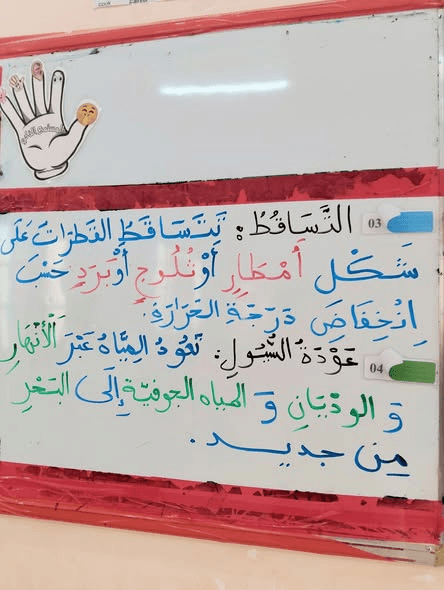 المستمع الجيد
03 التَّسَاقُطُ: تَتَسَاقَطُ القَطَرَات عَلَى
شَكْل أَمْطَارٍ أَوْ ثُلُوجٍ أَوْ بَرَدٍ حَسْبَ
اِنْخِفَاضِ دَرَجَةِ الحَرَارَةِ.
04 عَوْدَةُ السُّيُولِ: تَعُودُ المِيَاهُ عَبْرَ الْأَنْهَارِ
وَ الوِدْيَانِ وَ المياه الجوفيّة إِلَى البَحْرِ
مِن جديد.